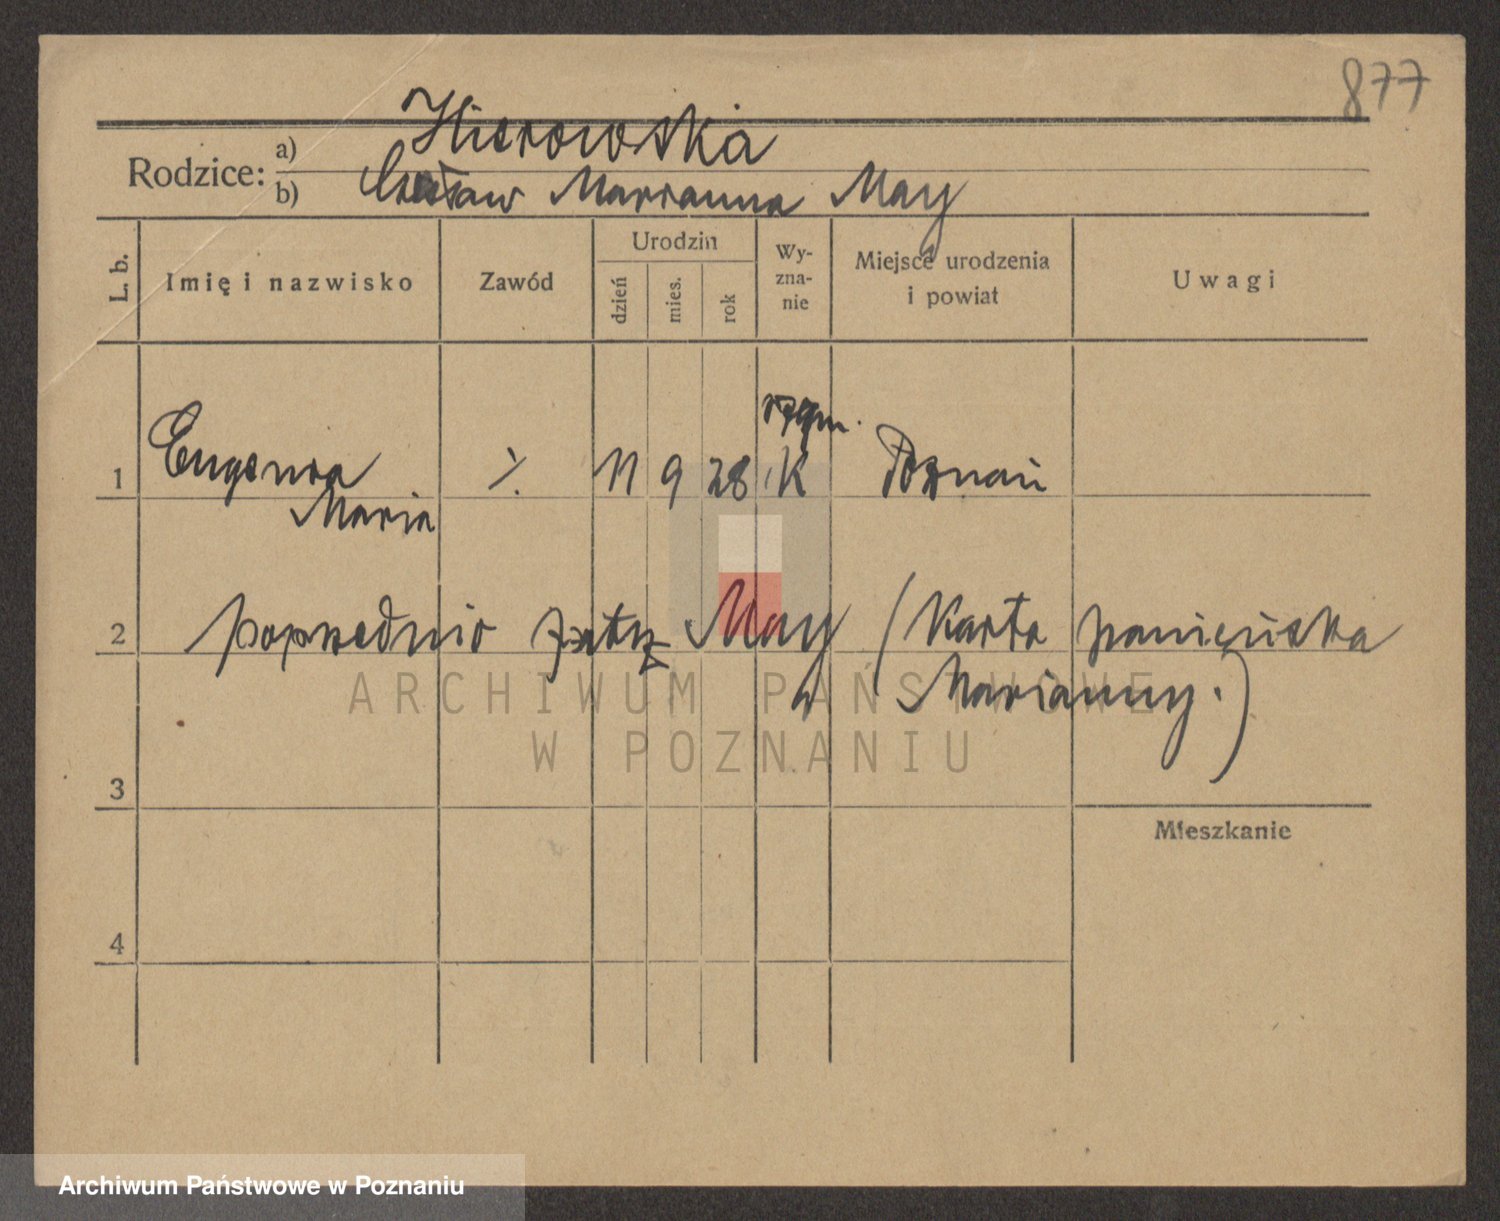 877
Hierowska
Rodzice: a)
b) Czesław Marianna May
L. b. Imię i nazwisko Zawód Urodzin dzień mies. rok Wy-zna-nie Miejsce urodzenia i powiat Uwagi
rzym.
1 Eugenia ./. 11 9 28 K Poznań
Maria
2 poprzednio May (Karta panieńska
Marianny.)
3
Mieszkanie
4
ARCHIWUM PAŃSTWOWE
W POZNANIU
Archiwum Państwowe w Poznaniu